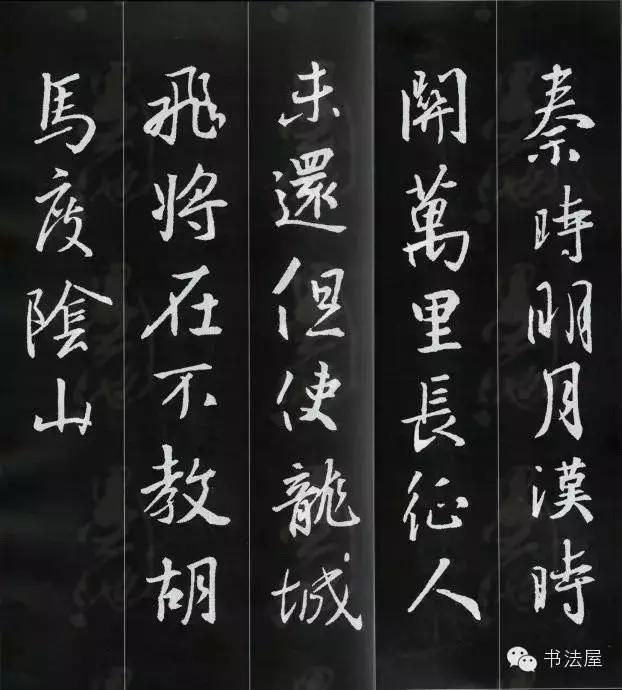 秦時明月漢時
關萬里長征人
未還但使龍城
飛將在不教胡
馬度陰山
书法屋